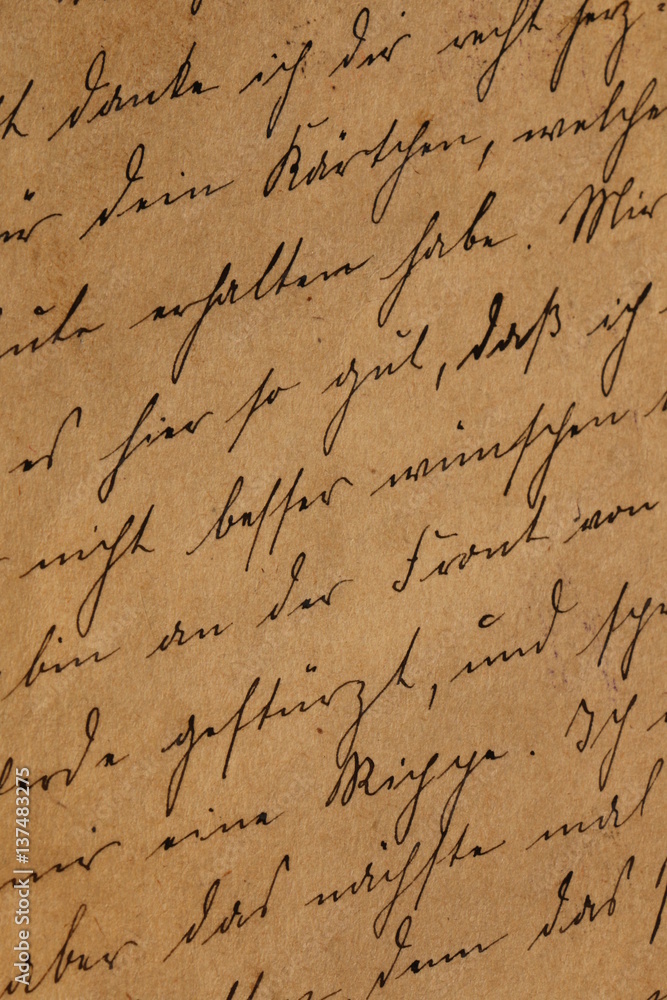 danke ich dir recht herz-
dein Kärtchen, welche
erhalten habe. Mir
es hier so gut, daß ich
nicht besser wünschen
bin an der Front von
gestürzt, und
mir eine Rippe. Ich
aber das nächste mal
denn das
Adobe Stock | #137483275